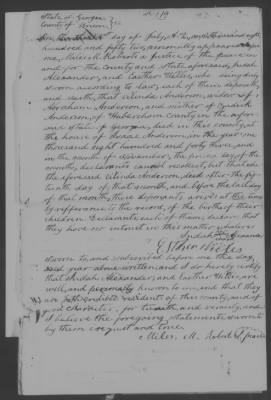 State of Georgia
County of Union
day of July, A.D. one thousand eight
hundred and fifty two, personally appeared before
me, Miles M. Roberts a Justice of the peace in
and for the county and State aforesaid, Judah
Alexander, and Easther Willis, who being duly
sworn according to law, each of them deposeth,
and saith, that Urinda Anderson, widow of
Abraham Anderson, and mother of
Anderson, of Habersham County in the afore
said State of Georgia, died in this county, at
the house of Isaac Anderson, in the year one
thousand eight hundred and forty three, and
in the month of September, the precise day of the
month, declarants cannot recollect, but that she
the aforesaid Urinda Anderson, died after the fif
teenth day of that month, and before the last day
of that month, these deponants arrive at the time
by refference to the record, of the birth of their
children. Declarants, each of them, declare that
they have no interest in this matter whatever
Judah Alexander
Esther Willis
Sworn to, and subscribed before me the day
and year above written, and I do hereby certify
that Judah Alexander, and Easther Willis, are
well, and personally known to me, and that they
are both credible residents of this county, and of
good character, for truth, and veracity, and
I believe the foregoing statements sworn to
by them correct and true
Miles M. Roberts J. peace